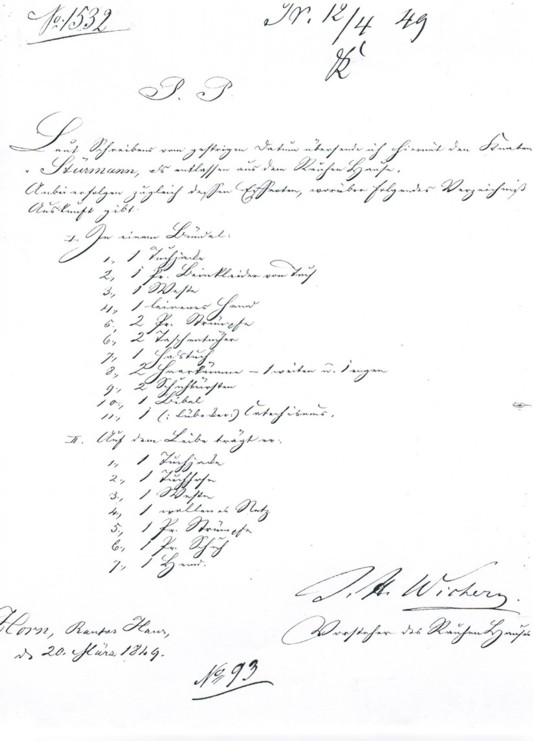 No. 1532
Pr. 12/4 49
P. P.
Laut Schreibens vom gestrigen Datum übersende ich hiermit den Knaben
Stürmann, als entlassen aus dem Rauhen Hause.
Anbei erfolgen zugleich dessen Effecten, worüber folgendes Verzeichniß
Auskunft gibt:
I. In einem Bündel:
1., 1 Tuchjacke
2., 1 Pr. Beinkleider von Tuch
3., 1 Weste
4., 1 leinenes Hemd
5., 2 Pr. Strümpfe
6., 2 Taschentücher
7., 1 Halstuch
8., 2 Haarkämme – 1 weiten u. 1 engen
9., 2 Schuhbürsten
10., 1 Bibel
11., 1 (: lübecker:) Catechismus.
II. Auf dem Leibe trägt er:
1., 1 Tuchjacke
2., 1 Tuchhose
3., 1 Weste
4., 1 wollenes
5., 1 Pr. Strümpfe
6., 1 Pr. Schuh
7., 1 Hemd.
J. H. Wichern.
Vorsteher des Rauhen Hauses
Horn, Rauhes Haus,
d. 20. März 1849.
No 93